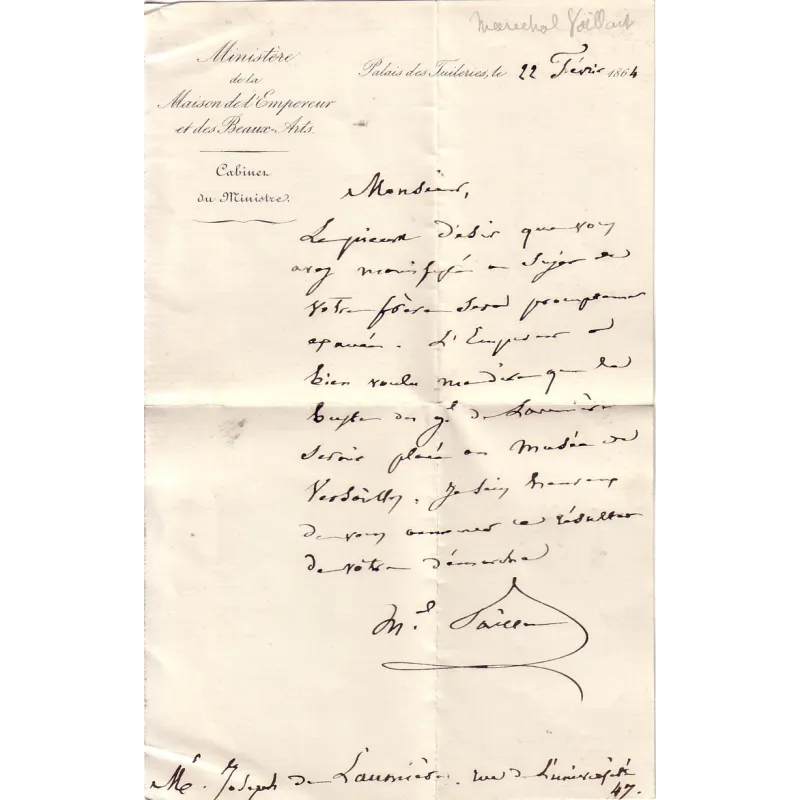 Maréchal Vaillant
Ministère
de la
Maison de l'Empereur
et des Beaux-Arts.
Cabinet
du Ministre.
Palais des Tuileries, le 22 Févr 1864
Monsieur,
Le pieux désir que vous
avez manifesté au sujet de
votre frère sera promptement
exaucé. L'Empereur a
bien voulu me dire que le
buste du gl de Laumière
serait placé au Musée de
Versailles. Je suis heureux
de vous annoncer ce résultat
de votre démarche
Ml Vaillant
Mr. Joseph de Laumière. rue de l'université
47.